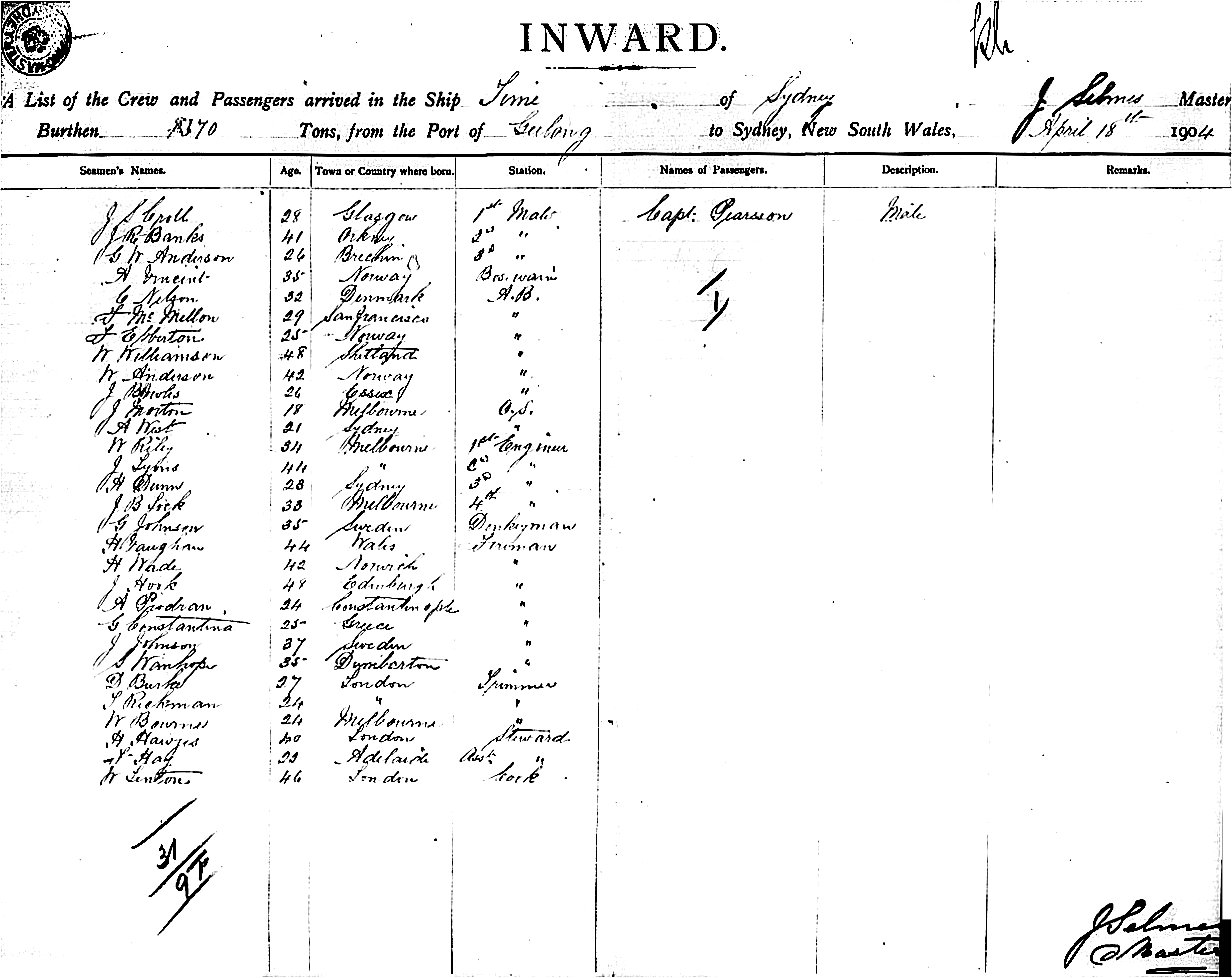 INWARD.
A List of the Crew and Passengers arrived in the Ship Time of Sydney J. Selmes Master
Burthen 170 Tons, from the Port of Geelong to Sydney, New South Wales, April 18th 1904
Seamen's Names. Age. Town or Country where born. Station. Names of Passengers. Description. Remarks.
J S Croll 28 Glasgow 1st Mate Capt. Pearsson Male
J R Banks 41 Orkney 2nd "
G W Anderson 26 Brechin 3d "
A Vincent 35 Norway Boswain
C Nelson 32 Denmark A.B.
Mc Mellon 29 San Francisco "
Ebberton 25 Norway "
W Williamson 48 Shetland "
W Anderson 42 Norway "
J 26 Essex "
J Morton 18 Melbourne O.S.
A West 21 Sydney "
W Riley 34 Melbourne 1st Engineer
J Lyons 44 " 2nd "
H Dunn 28 Sydney 3d "
J B Sick 33 Melbourne 4th "
G Johnson 35 Sweden Donkeyman
H Vaughan 44 Wales Fireman
H Wade 42 Norwich "
J Hook 48 Edinburgh "
A 24 Constantinople "
G Constantina 25 Greece "
J Johnson 37 Sweden "
S Wanhope 35 Dumberton "
D Burke 27 London Trimmer
T Rickman 24 " "
W Bourne 24 Melbourne "
H Hawjes 40 London Steward
Hay 22 Adelaide Asst. "
W Lenton 46 London Cook
1
31
J Selmes
Master